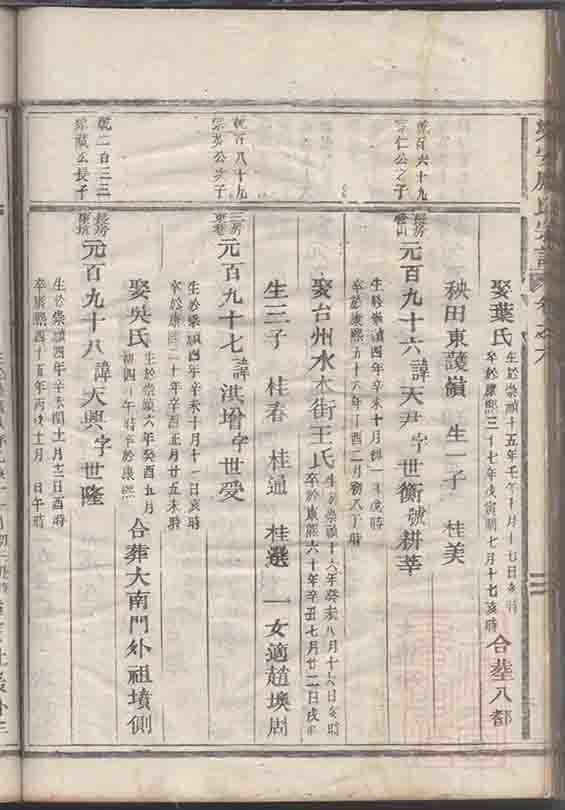 氏宗譜
娶葉氏
生於崇禎十五年壬午十月十七日亥時
卒於康熙三十七年戊寅閏七月十七亥時
合塟八都
秧田東陵嶺 生一子 桂美
乾百六十九
宗仁公之子
長房
元百九十六諱天尹字世衡號耕莘
生於崇禎四年辛未十月初一戌時
卒於康熙五十六年丁酉二月初八丁時
娶台州水木街王氏
生於崇禎十六年癸未八月十六日亥時
卒於康熙六十年辛丑七月廿二日戌時
生三子 桂春 桂通 桂選 一女適趙墺周
乾百八十九
宗 公之子
三房
元百九十七諱洪增字世受
生於崇禎四年辛未十月十一日亥時
卒於康熙二十年辛酉正月廿五未時
娶吳氏
生於崇禎六年癸酉五月
初四丁午時卒於康熙
合葬大南門外祖墳側
乾二百三三
宗 公長子
長房
元百九十八諱天興字世隆
生於崇禎四年辛未閏十一月十三日酉時
卒康熙四十五年丙戌十一月 日午時